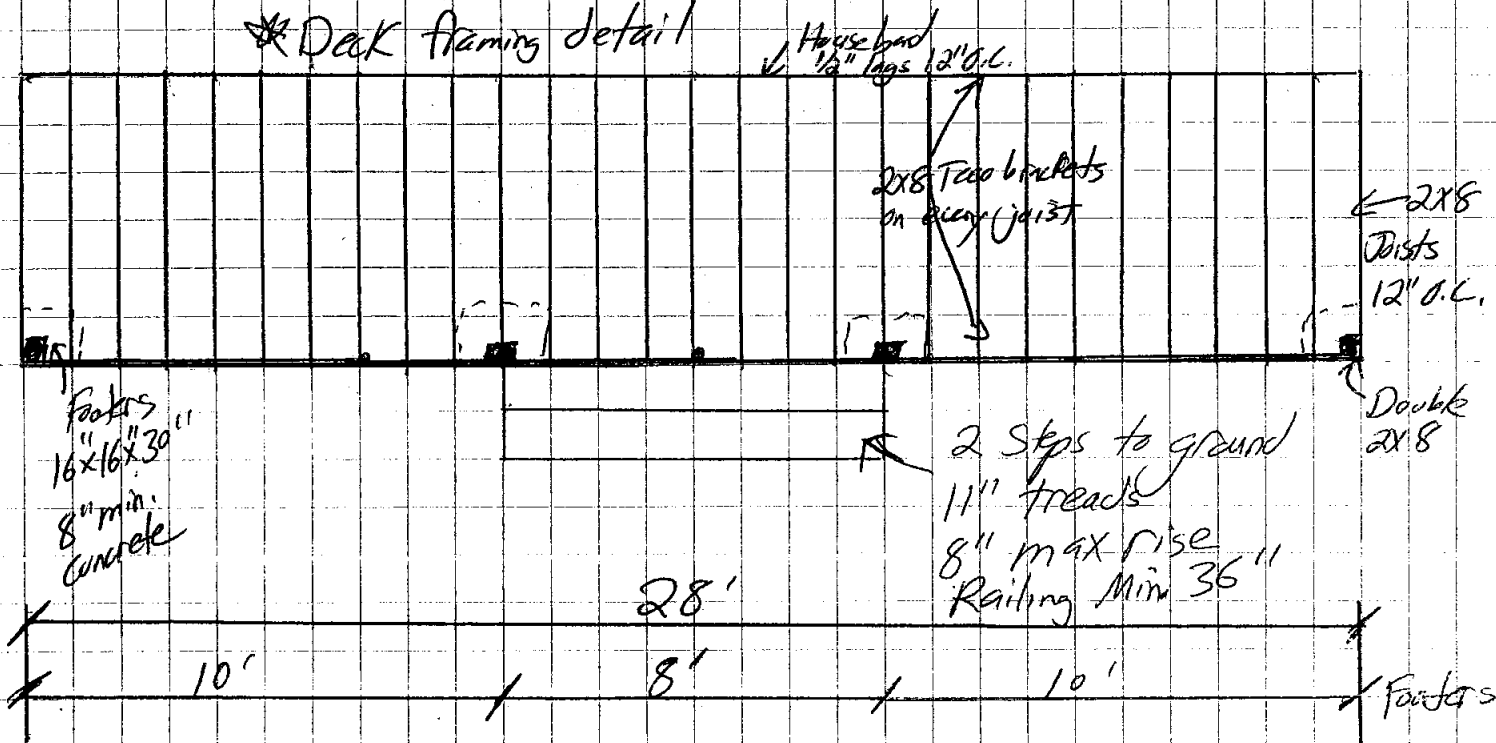 * Deck framing detail
House band
1/2" lags 12" O.C.
2x8 Teco brackets
on every joist
2x8
Joists
12" O.C.
Footers
16"x16"x30"
8" min.
concrete
Double
2x8
2 Steps to ground
11" treads
8" max rise
Railing Min 36"
28'
10'
8'
10'
Footers